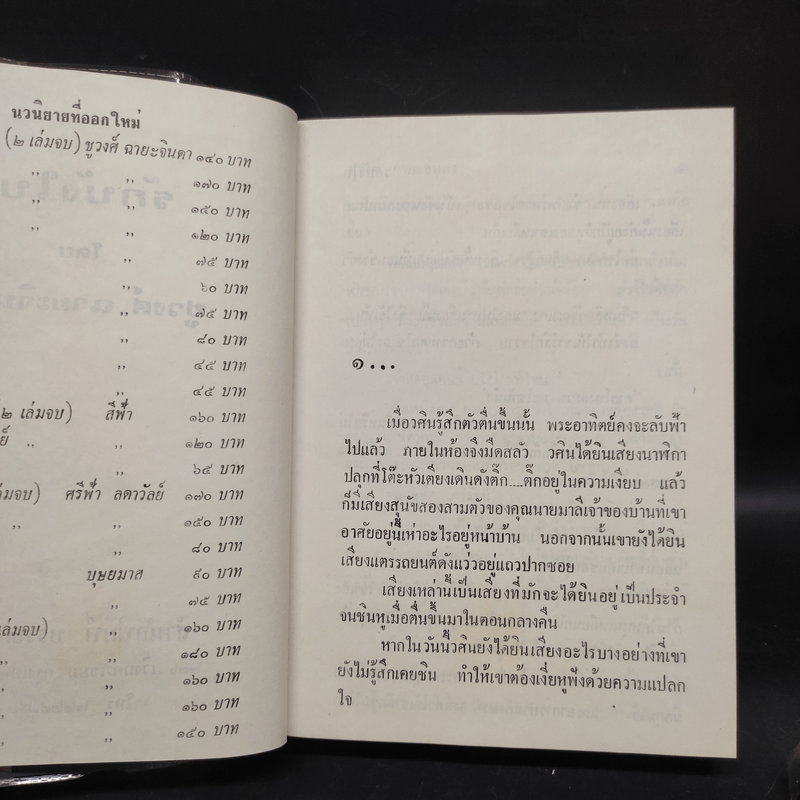 นวนิยายที่ออกใหม่
(๒ เล่มจบ) ชูวงศ์ ฉายะจินดา ๑๔๐ บาท
,, ,, ๑๗๐ บาท
,, ,, ๑๕๐ บาท
,, ,, ๑๒๐ บาท
,, ๗๕ บาท
,, ๖๐ บาท
,, ๗๕ บาท
,, ๘๐ บาท
,, ๔๕ บาท
,, ๔๕ บาท
๒ เล่มจบ) สีฟ้า ๑๖๐ บาท
ย์ ,, ,, ๑๒๐ บาท
,, ๖๕ บาท
เล่มจบ) ศรีฟ้า ลดาวัลย์ ๑๗๐ บาท
,, ,, ๑๕๐ บาท
,, ๘๐ บาท
บุษยมาส ๙๐ บาท
,, ๗๕ บาท
เล่มจบ) ,, ๑๖๐ บาท
,, ,, ๑๘๐ บาท
,, ,, ๑๖๐ บาท
,, ,, ๑๖๐ บาท
,, ,, ๑๕๐ บาท
๑...
เมื่อวศินรู้สึกตัวตื่นขึ้นนั้น พระอาทิตย์คงจะลับฟ้า
ไปแล้ว ภายในห้องจึงมืดสลัว วศินได้ยินเสียงนาฬิกา
ปลุกที่โต๊ะหัวเตียงเดินดังติ๊ก....ติ๊กอยู่ในความเงียบ แล้ว
ก็มีเสียงสุนัขสองสามตัวของคุณนายมาลีเจ้าของบ้านที่เขา
อาศัยอยู่นี้เห่าอะไรอยู่หน้าบ้าน นอกจากนั้นเขายังได้ยิน
เสียงแตรรถยนต์ดังแว่วอยู่แถวปากซอย
เสียงเหล่านี้เป็นเสียงที่มักจะได้ยินอยู่เป็นประจำ
จนชินหูเมื่อตื่นขึ้นมาในตอนกลางคืน
หากในวันนี้วศินยังได้ยินเสียงอะไรบางอย่างที่เขา
ยังไม่รู้สึกเคยชิน ทำให้เขาต้องเงี่ยหูฟังด้วยความแปลก
ใจ